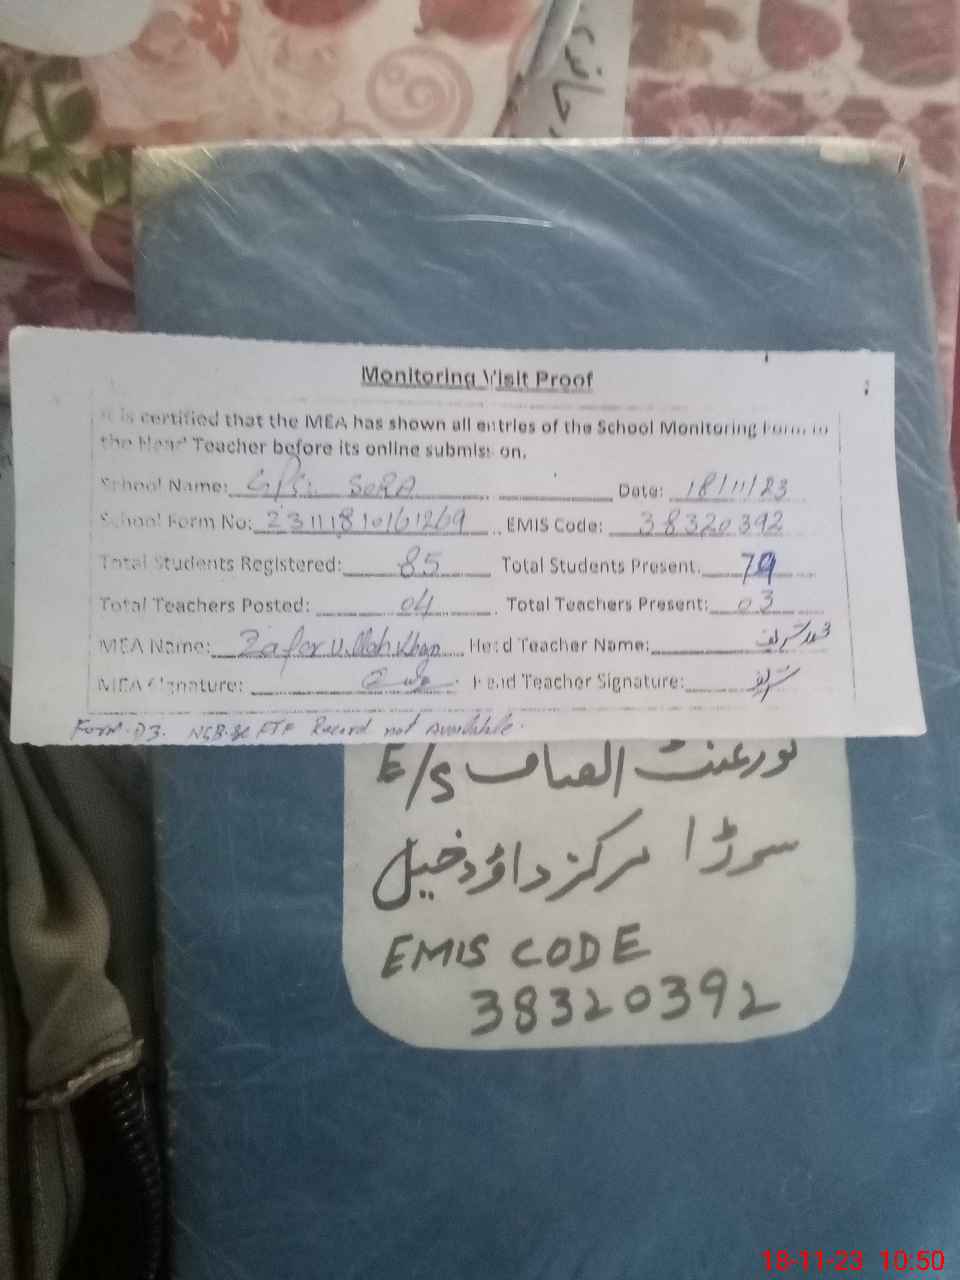 Monitoring Visit Proof
It is certified that the MEA has shown all entries of the School Monitoring Form to
the Head Teacher before its online submission.
School Name: G/P/S: SORA Date: 18/11/23
School Form No: 23111810161269 EMIS Code: 38320392
Total Students Registered: 85 Total Students Present: 79
Total Teachers Posted: 04 Total Teachers Present: 03
MEA Name: Zafar Ullah Khan Head Teacher Name: محمد شریف
MEA Signature: Head Teacher Signature: شریف
Form D3. NSB & FTF Record not Available.
گورنمنٹ الصاف E/S
سوڑا مرکز داؤدخیل
EMIS CODE
38320392
18-11-23 10:50